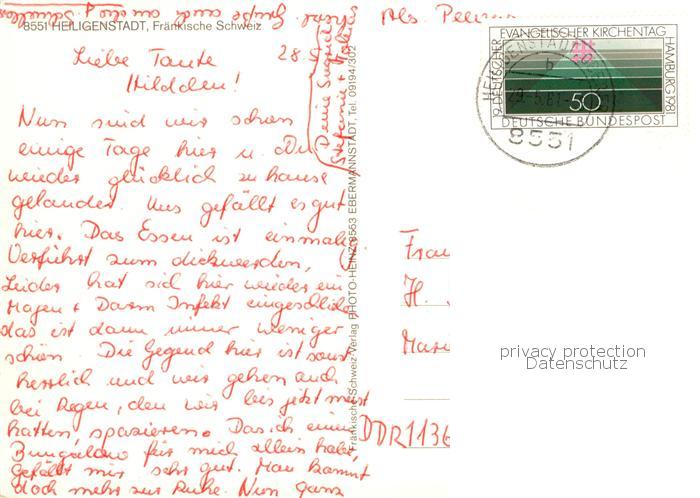 8551 HEILIGENSTADT, Fränkische Schweiz
28.5.
Liebe Tante
Hildchen!
Nun sind wir schon
einige Tage hier u. Du
wieder glücklich zu hause
gelandet. Uns gefällt es gut
hier. Das Essen ist einmalig
Verführt zum dickwerden,
Leider hat sich hier wieder ein
Magen + Darm Infekt eingeschlichen
das ist dann immer weniger
schön. Die Gegend hier ist sonst
herrlich und wir gehen auch
bei Regen, den wir bis jetzt meist
hatten, spazieren. Das ich einen
Bungalow für mich allein habe,
gefällt mir sehr gut. Man kommt
doch mehr zur Ruhe. Nun ganz
Grüße auch an
Deine
Stefanie +
Fränkische-Schweiz-Verlag PHOTO-HEINZ, 8553 EBERMANNSTADT, Tel. 09194/302
Abs.
19. DEUTSCHER EVANGELISCHER KIRCHENTAG HAMBURG 1981
50
DEUTSCHE BUNDESPOST
HEILIGENSTADT
b
8551
Frau
H.
DDR 1136
privacy protection
Datenschutz